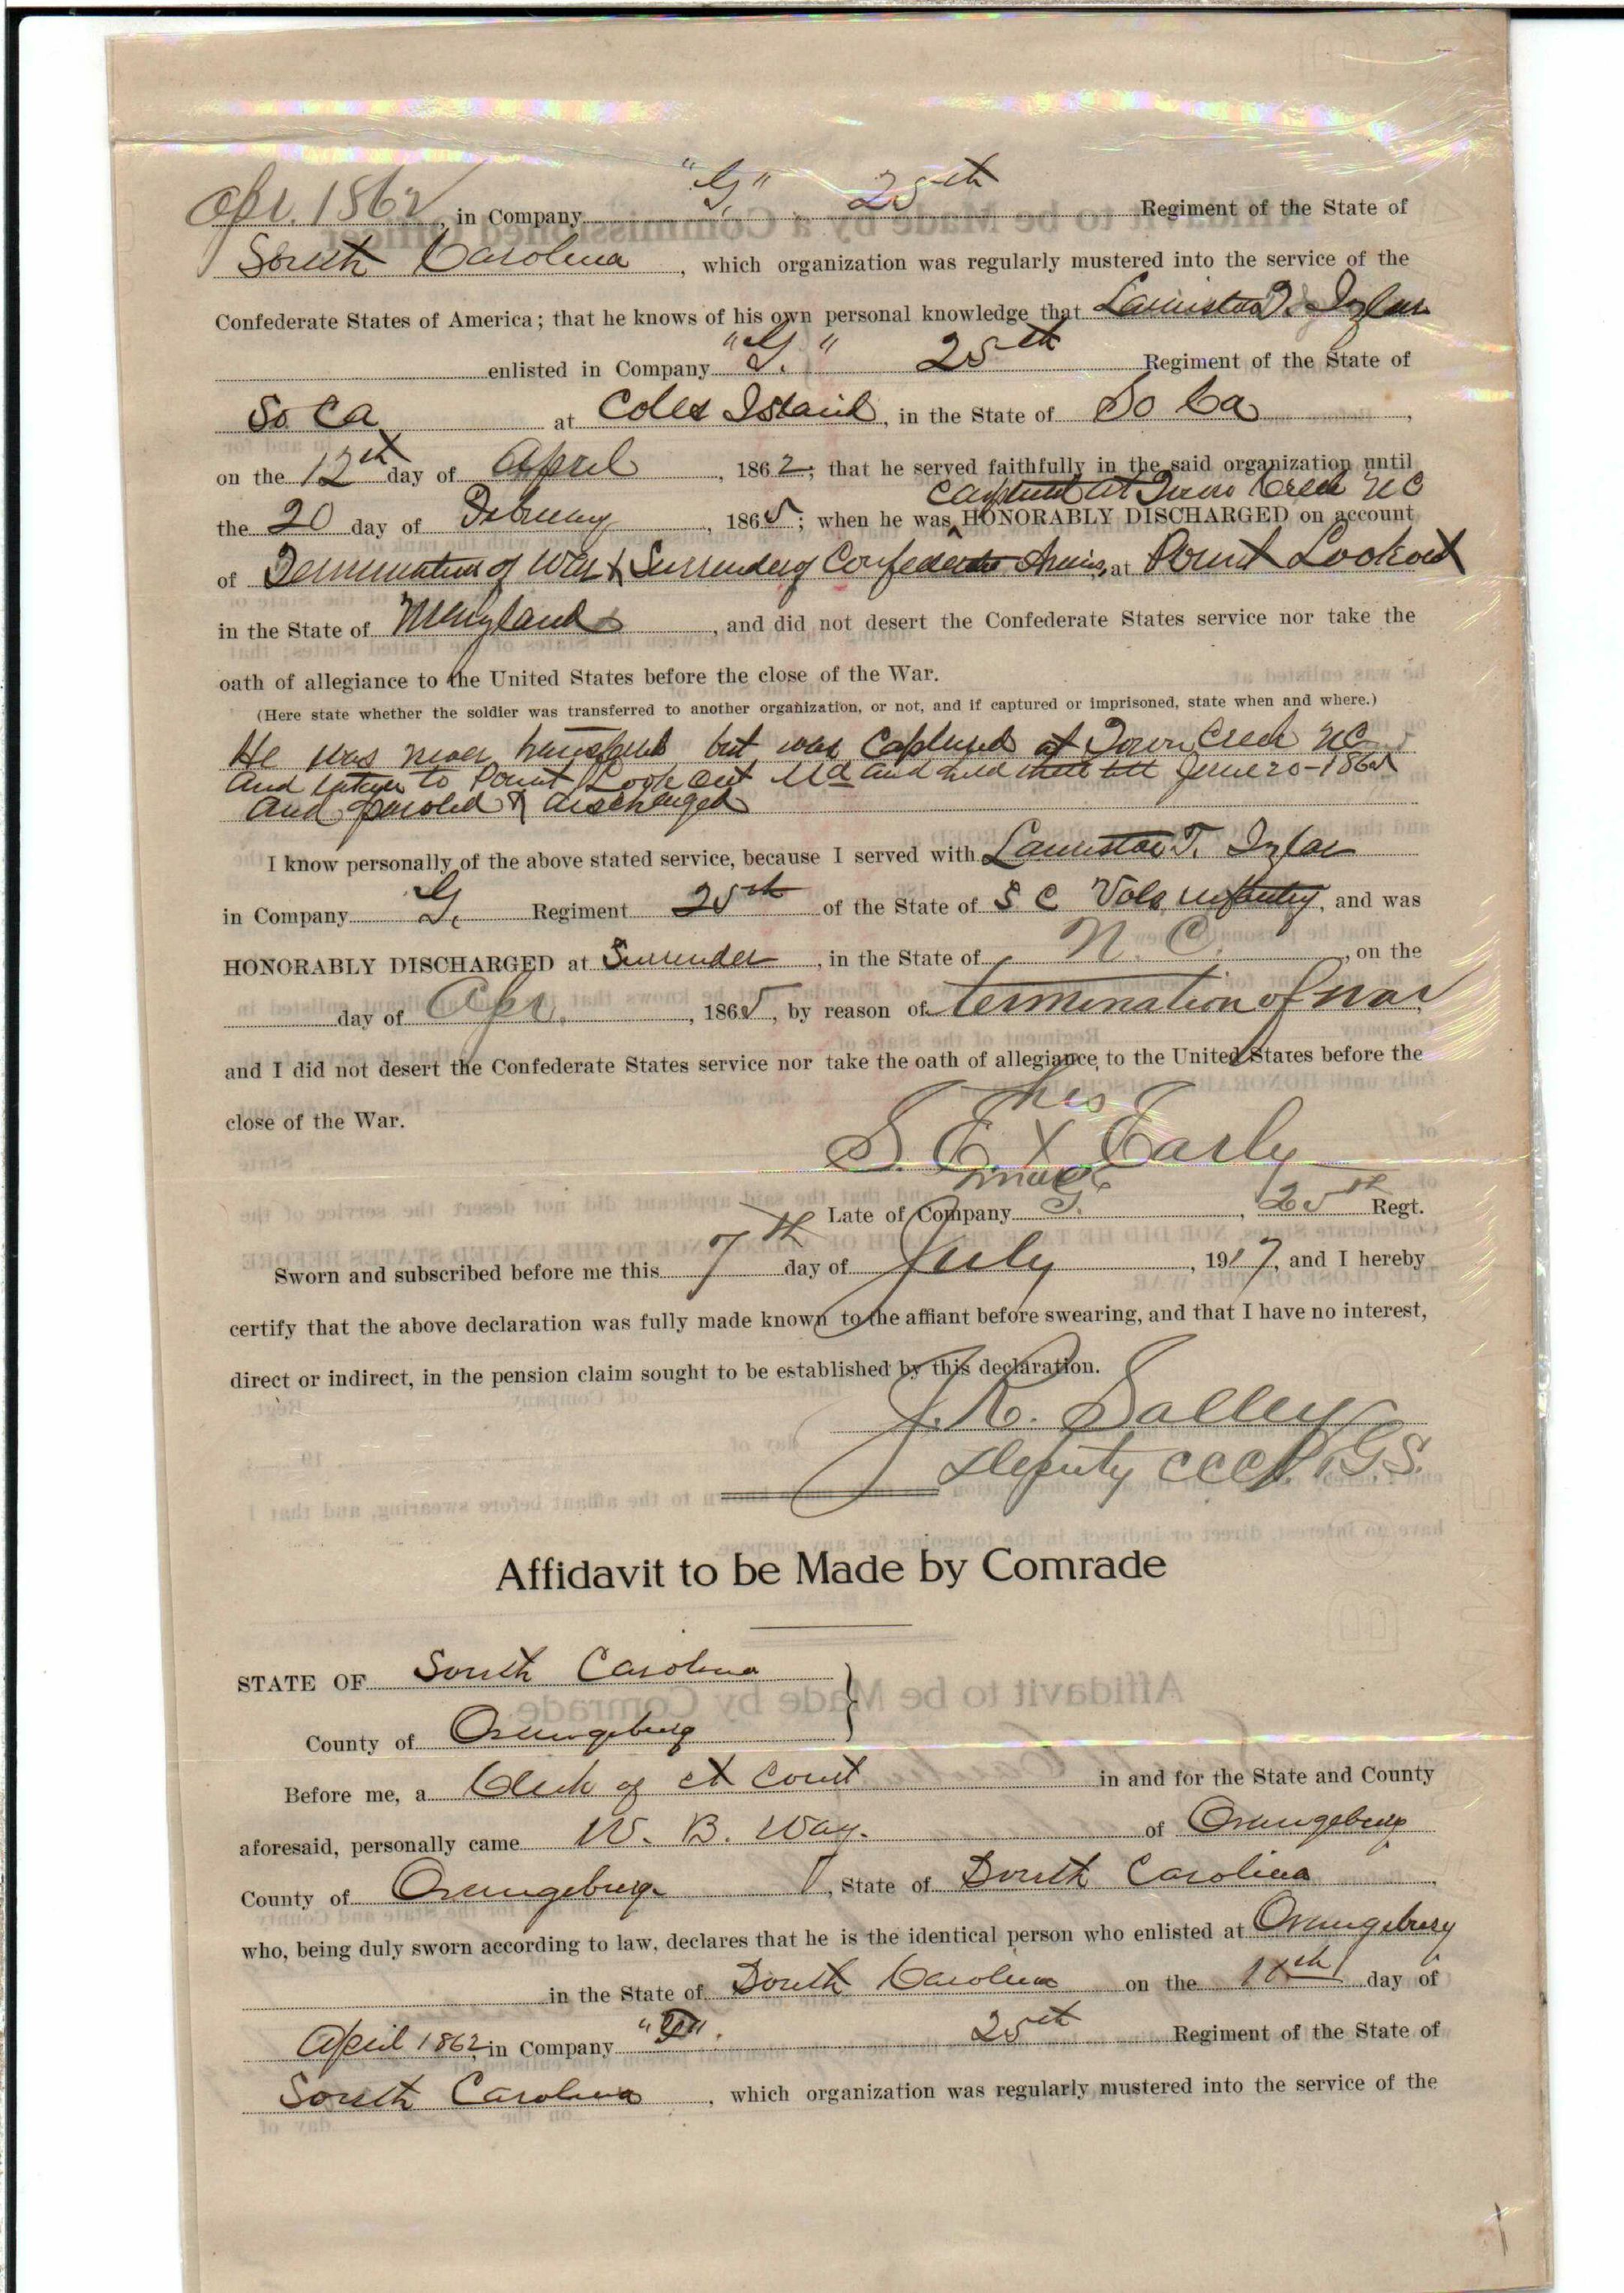 Apr. 1862, in Company "G," 25th Regiment of the State of
South Carolina, which organization was regularly mustered into the service of the
Confederate States of America; that he knows of his own personal knowledge that Lauriston T. Izlar
enlisted in Company "G." 25th Regiment of the State of
So Ca at Coles Island, in the State of So Ca,
on the 12th day of April, 1862; that he served faithfully in the said organization until
captured at Town Creek NC
the 20 day of February, 1865; when he was ^ HONORABLY DISCHARGED on account
of Termination of War & Surrender of Confederate Armies, at Point Lookout
in the State of Maryland, and did not desert the Confederate States service nor take the
oath of allegiance to the United States before the close of the War.
(Here state whether the soldier was transferred to another organization, or not, and if captured or imprisoned, state when and where.)
He was never transferred but was Captured at Town Creek NC
and taken to Point Look out Md and held there till June 20-1865
and paroled & discharged
I know personally of the above stated service, because I served with Lauriston T. Izlar
in Company G. Regiment 25th of the State of S C Vols infantry, and was
HONORABLY DISCHARGED at Surrender, in the State of N. C., on the
day of Apr., 1865, by reason of termination of war
and I did not desert the Confederate States service nor take the oath of allegiance, to the United States before the
close of the War.
his
S. E. X Early
mark
Late of Company G., 25th Regt.
Sworn and subscribed before me this 7th day of July, 1917, and I hereby
certify that the above declaration was fully made known to the affiant before swearing, and that I have no interest,
direct or indirect, in the pension claim sought to be established by this declaration.
J. R. Salley
Deputy CCCP, GS.
Affidavit to be Made by Comrade
STATE OF South Carolina
County of Orangeburg
Before me, a Clerk of Court in and for the State and County
aforesaid, personally came W. B. Way. of Orangeburg
County of Orangeburg, State of South Carolina,
who, being duly sworn according to law, declares that he is the identical person who enlisted at Orangeburg
in the State of South Carolina on the day of
April 1862, in Company 25th Regiment of the State of
South Carolina, which organization was regularly mustered into the service of the